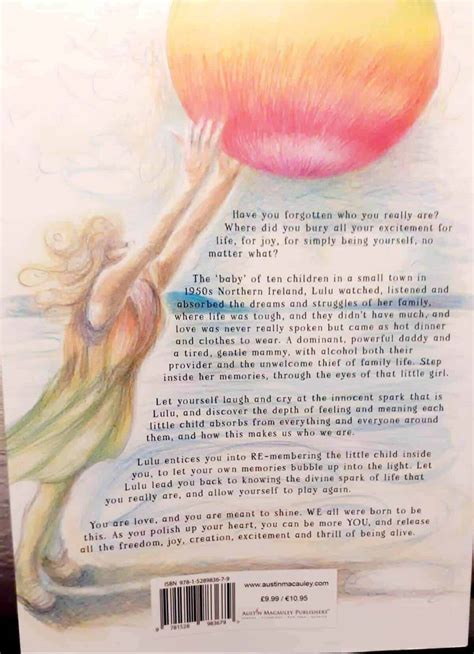 Have you forgotten who you really are?
Where did you bury all your excitement for
life, for joy, for simply being yourself, no
matter what?
The 'baby' of ten children in a small town in
1950s Northern Ireland, Lulu watched, listened and
absorbed the dreams and struggles of her family,
where life was tough, and they didn't have much, and
love was never really spoken but came as hot dinner
and clothes to wear. A dominant, powerful daddy and
a tired, gentle mammy, with alcohol both their
provider and the unwelcome thief of family life. Step
inside her memories, through the eyes of that little girl.
Let yourself laugh and cry at the innocent spark that is
Lulu, and discover the depth of feeling and meaning each
little child absorbs from everything and everyone around
them, and how this makes us who we are.
Lulu entices you into RE-membering the little child inside
you, to let your own memories bubble up into the light. Let
Lulu lead you back to knowing the divine spark of life that
you really are, and allow yourself to play again.
You are love, and you are meant to shine. WE all were born to be
this. As you polish up your heart, you can be more YOU, and release
all the freedom, joy, creation, excitement and thrill of being alive.
ISBN 978-1-5289836-7-9
9 781528 983679
www.austinmacauley.com
£9.99 / €10.95
AUSTIN MACAULEY PUBLISHERS